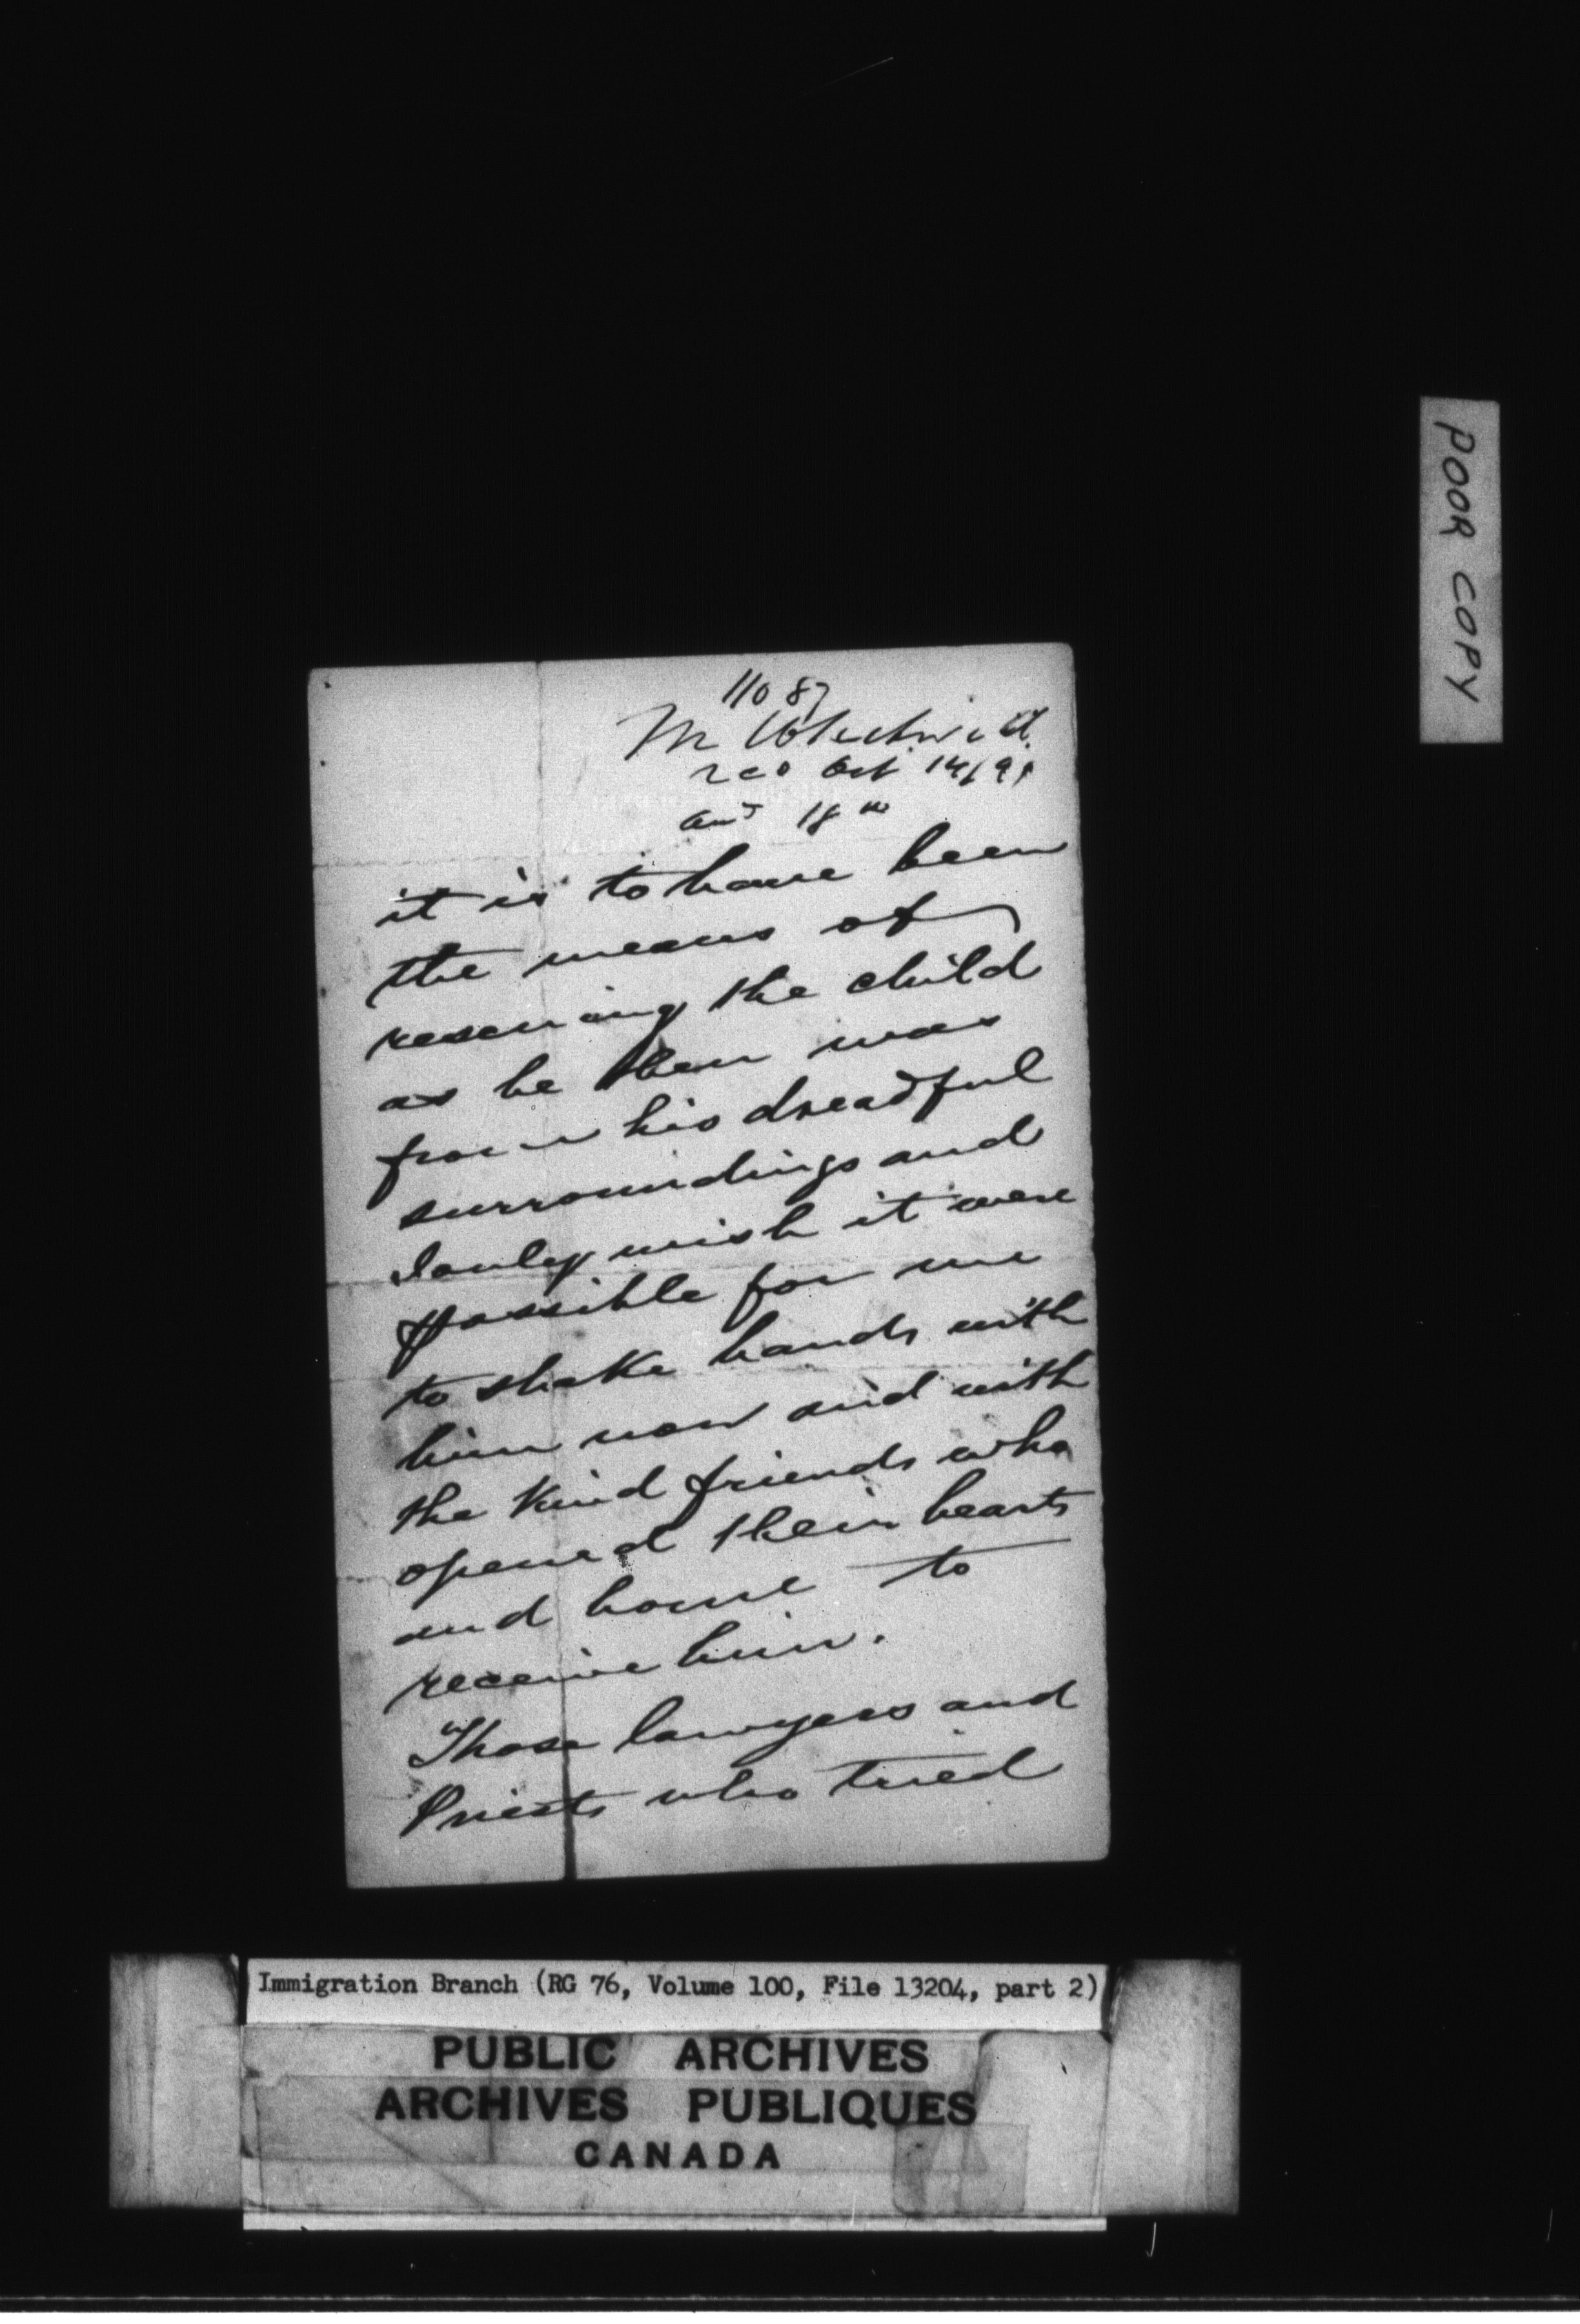 POOR COPY
11087
M
rec Oct 14/91
ans 18th
it is to have been
the means of
rescuing the child
as he then was
from his dreadful
surroundings and
I only wish it were
possible for me
to shake hands with
him now and with
the kind friends who
opened their hearts
and home to
receive him.
Those lawyers and
Priests who tried
Immigration Branch (RG 76, Volume 100, File 13204, part 2)
PUBLIC ARCHIVES
ARCHIVES PUBLIQUES
CANADA